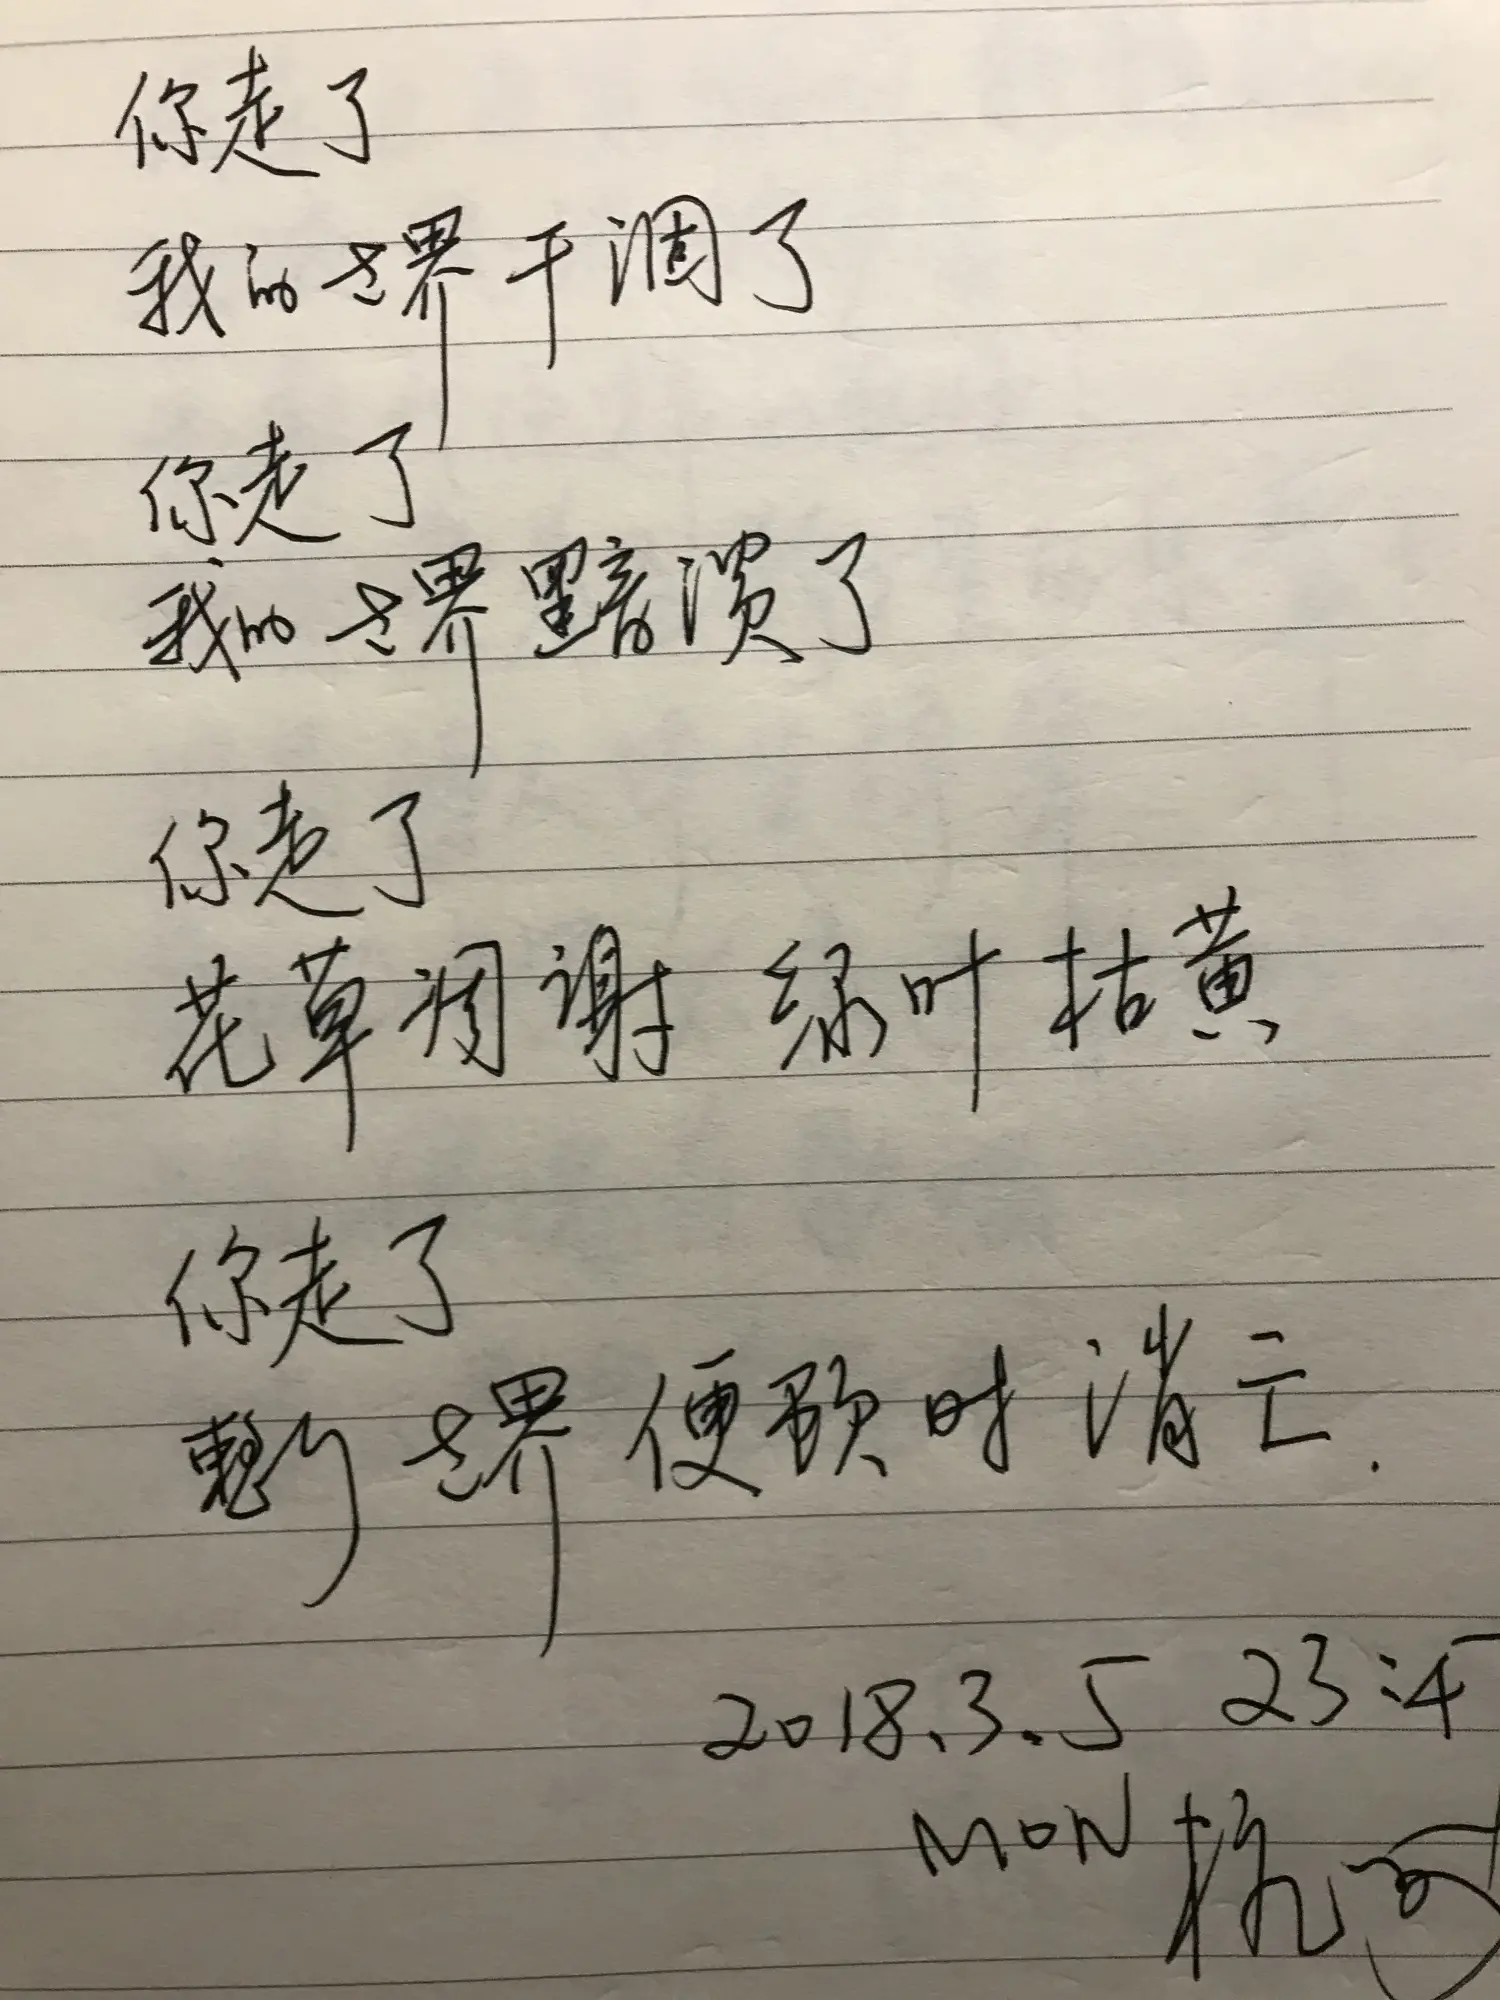 你走了
我的世界干涸了
你走了
我的世界黯溃了
你走了
花草凋谢 绿叶枯黄
你走了
世界便顿时消亡.
2018.3.5 23:45
MON 杭